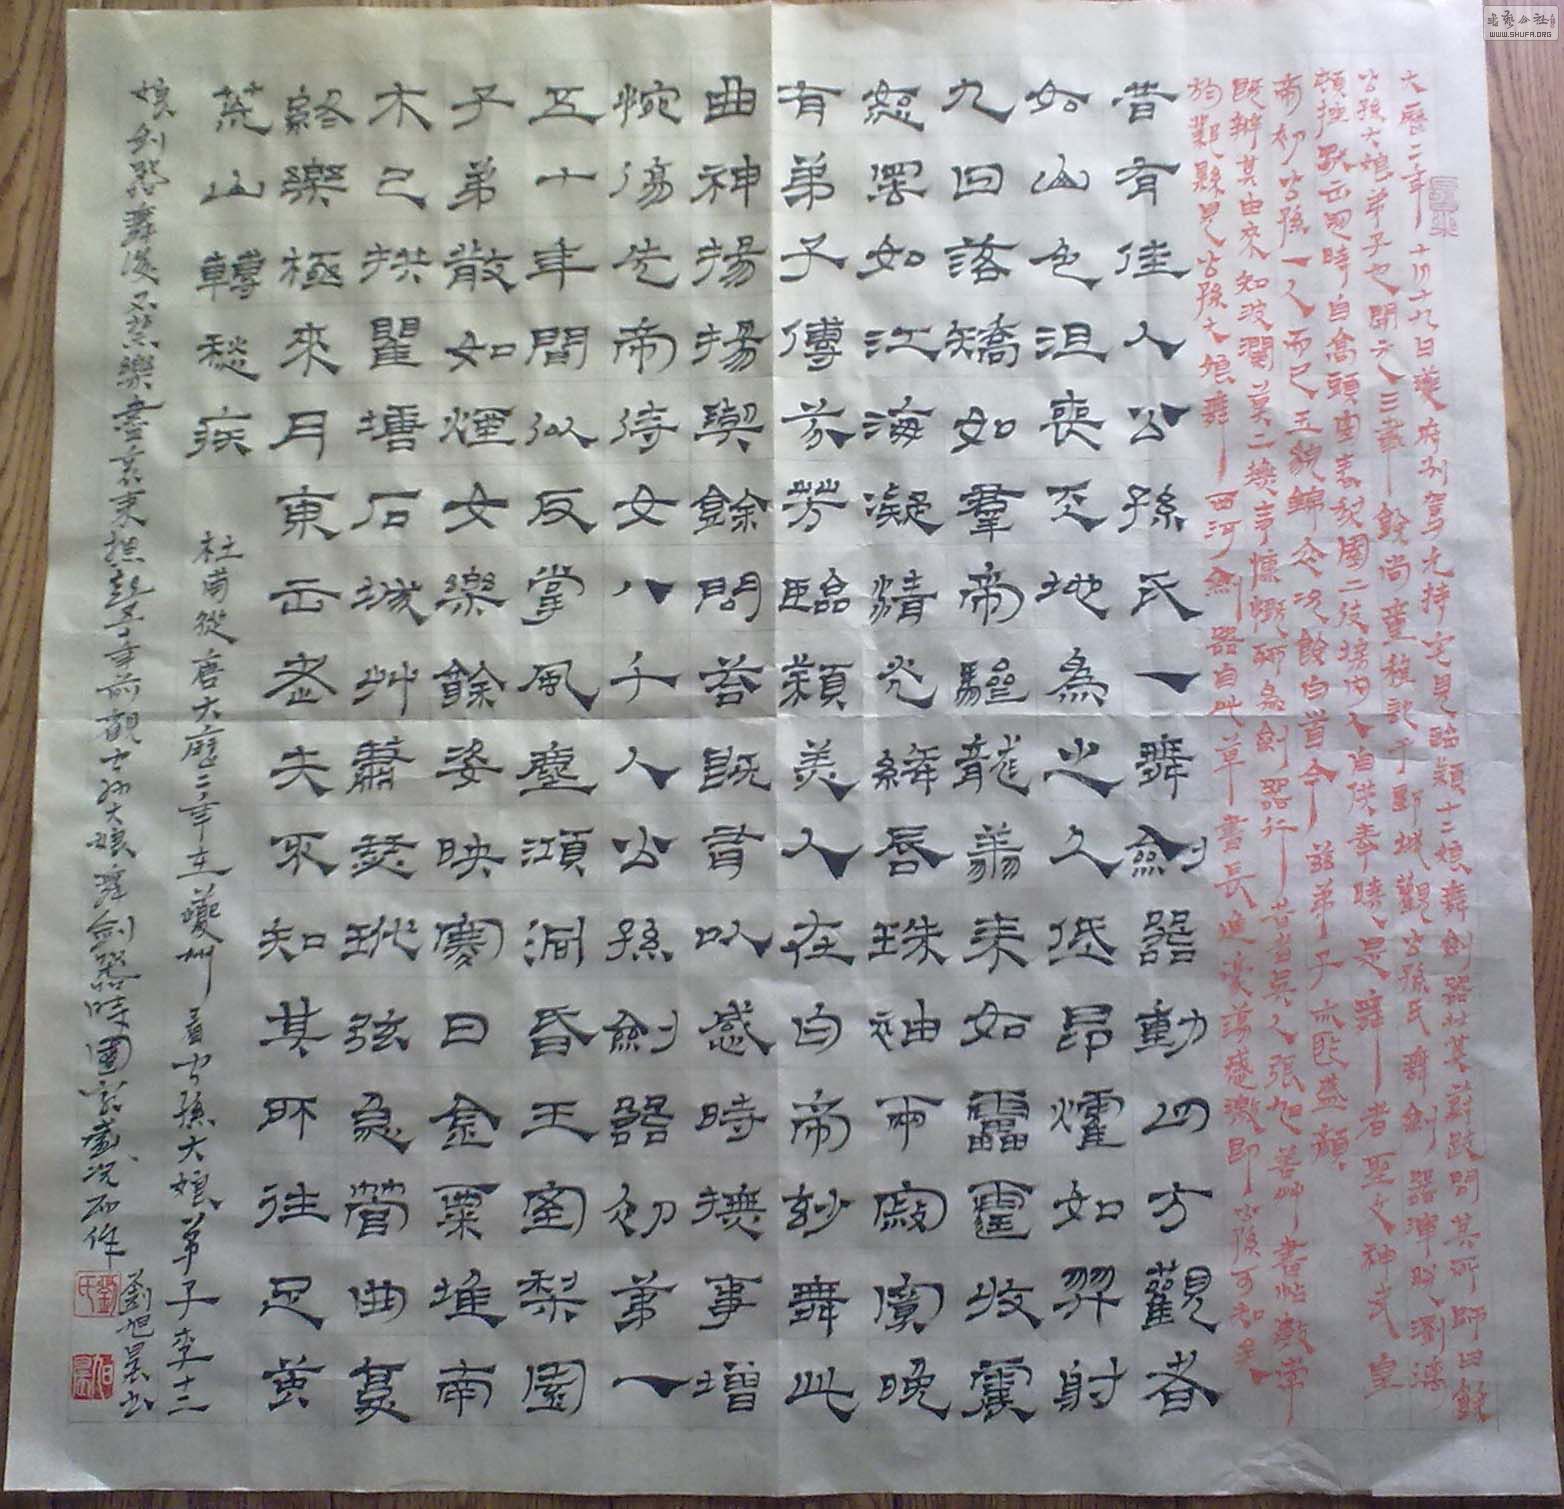 大曆二年十月十九日夔府別駕元持宅見臨潁十二娘舞劍器壯其蔚跂問其所師曰餘
公孫大娘弟子也開元三載餘尚童稚記于郾城觀公孫氏舞劍器渾脫瀏漓
頓挫獨出冠時自高頭宜春梨園二伎坊內人自供奉曉是舞者聖文神武皇
帝初公孫一人而已玉貌錦衣況餘白首今茲弟子亦匪盛顏
既辨其由來知波瀾莫二撫事慷慨聊為劍器行昔者吳人張旭善艸書帖數常
於鄴縣見公孫大娘舞西河劍器自此草書長進豪蕩感激即公孫可知矣
昔有佳人公孫氏一舞劍器動四方觀者
如山色沮喪天地為之久低昂燿如羿射
九日落矯如羣帝驂龍翔來如雷霆收震
怒罷如江海凝精光絳唇珠袖兩寂寞晚
有弟子傳芬芳臨潁美人在白帝妙舞此
曲神揚揚與餘問荅既有以感時撫事增
惋傷先帝侍女八千人公孫劍器初第一
五十年間似反掌風塵澒洞昏王室梨園
子弟散如煙女樂餘姿映寒日金粟堆南
木已拱瞿塘石城艸蕭瑟玳弦急管曲復
終樂極來月東出老夫不知其所往足黃
荒山轉愁疾
杜甫從唐大曆二年在夔州看公孫大娘弟子李十二
娘劍器舞後不禁樂盡哀來起五十年前觀公孫大娘舞劍器時國家盛況而作
劉旭書
WWW.SHUFA.ORG